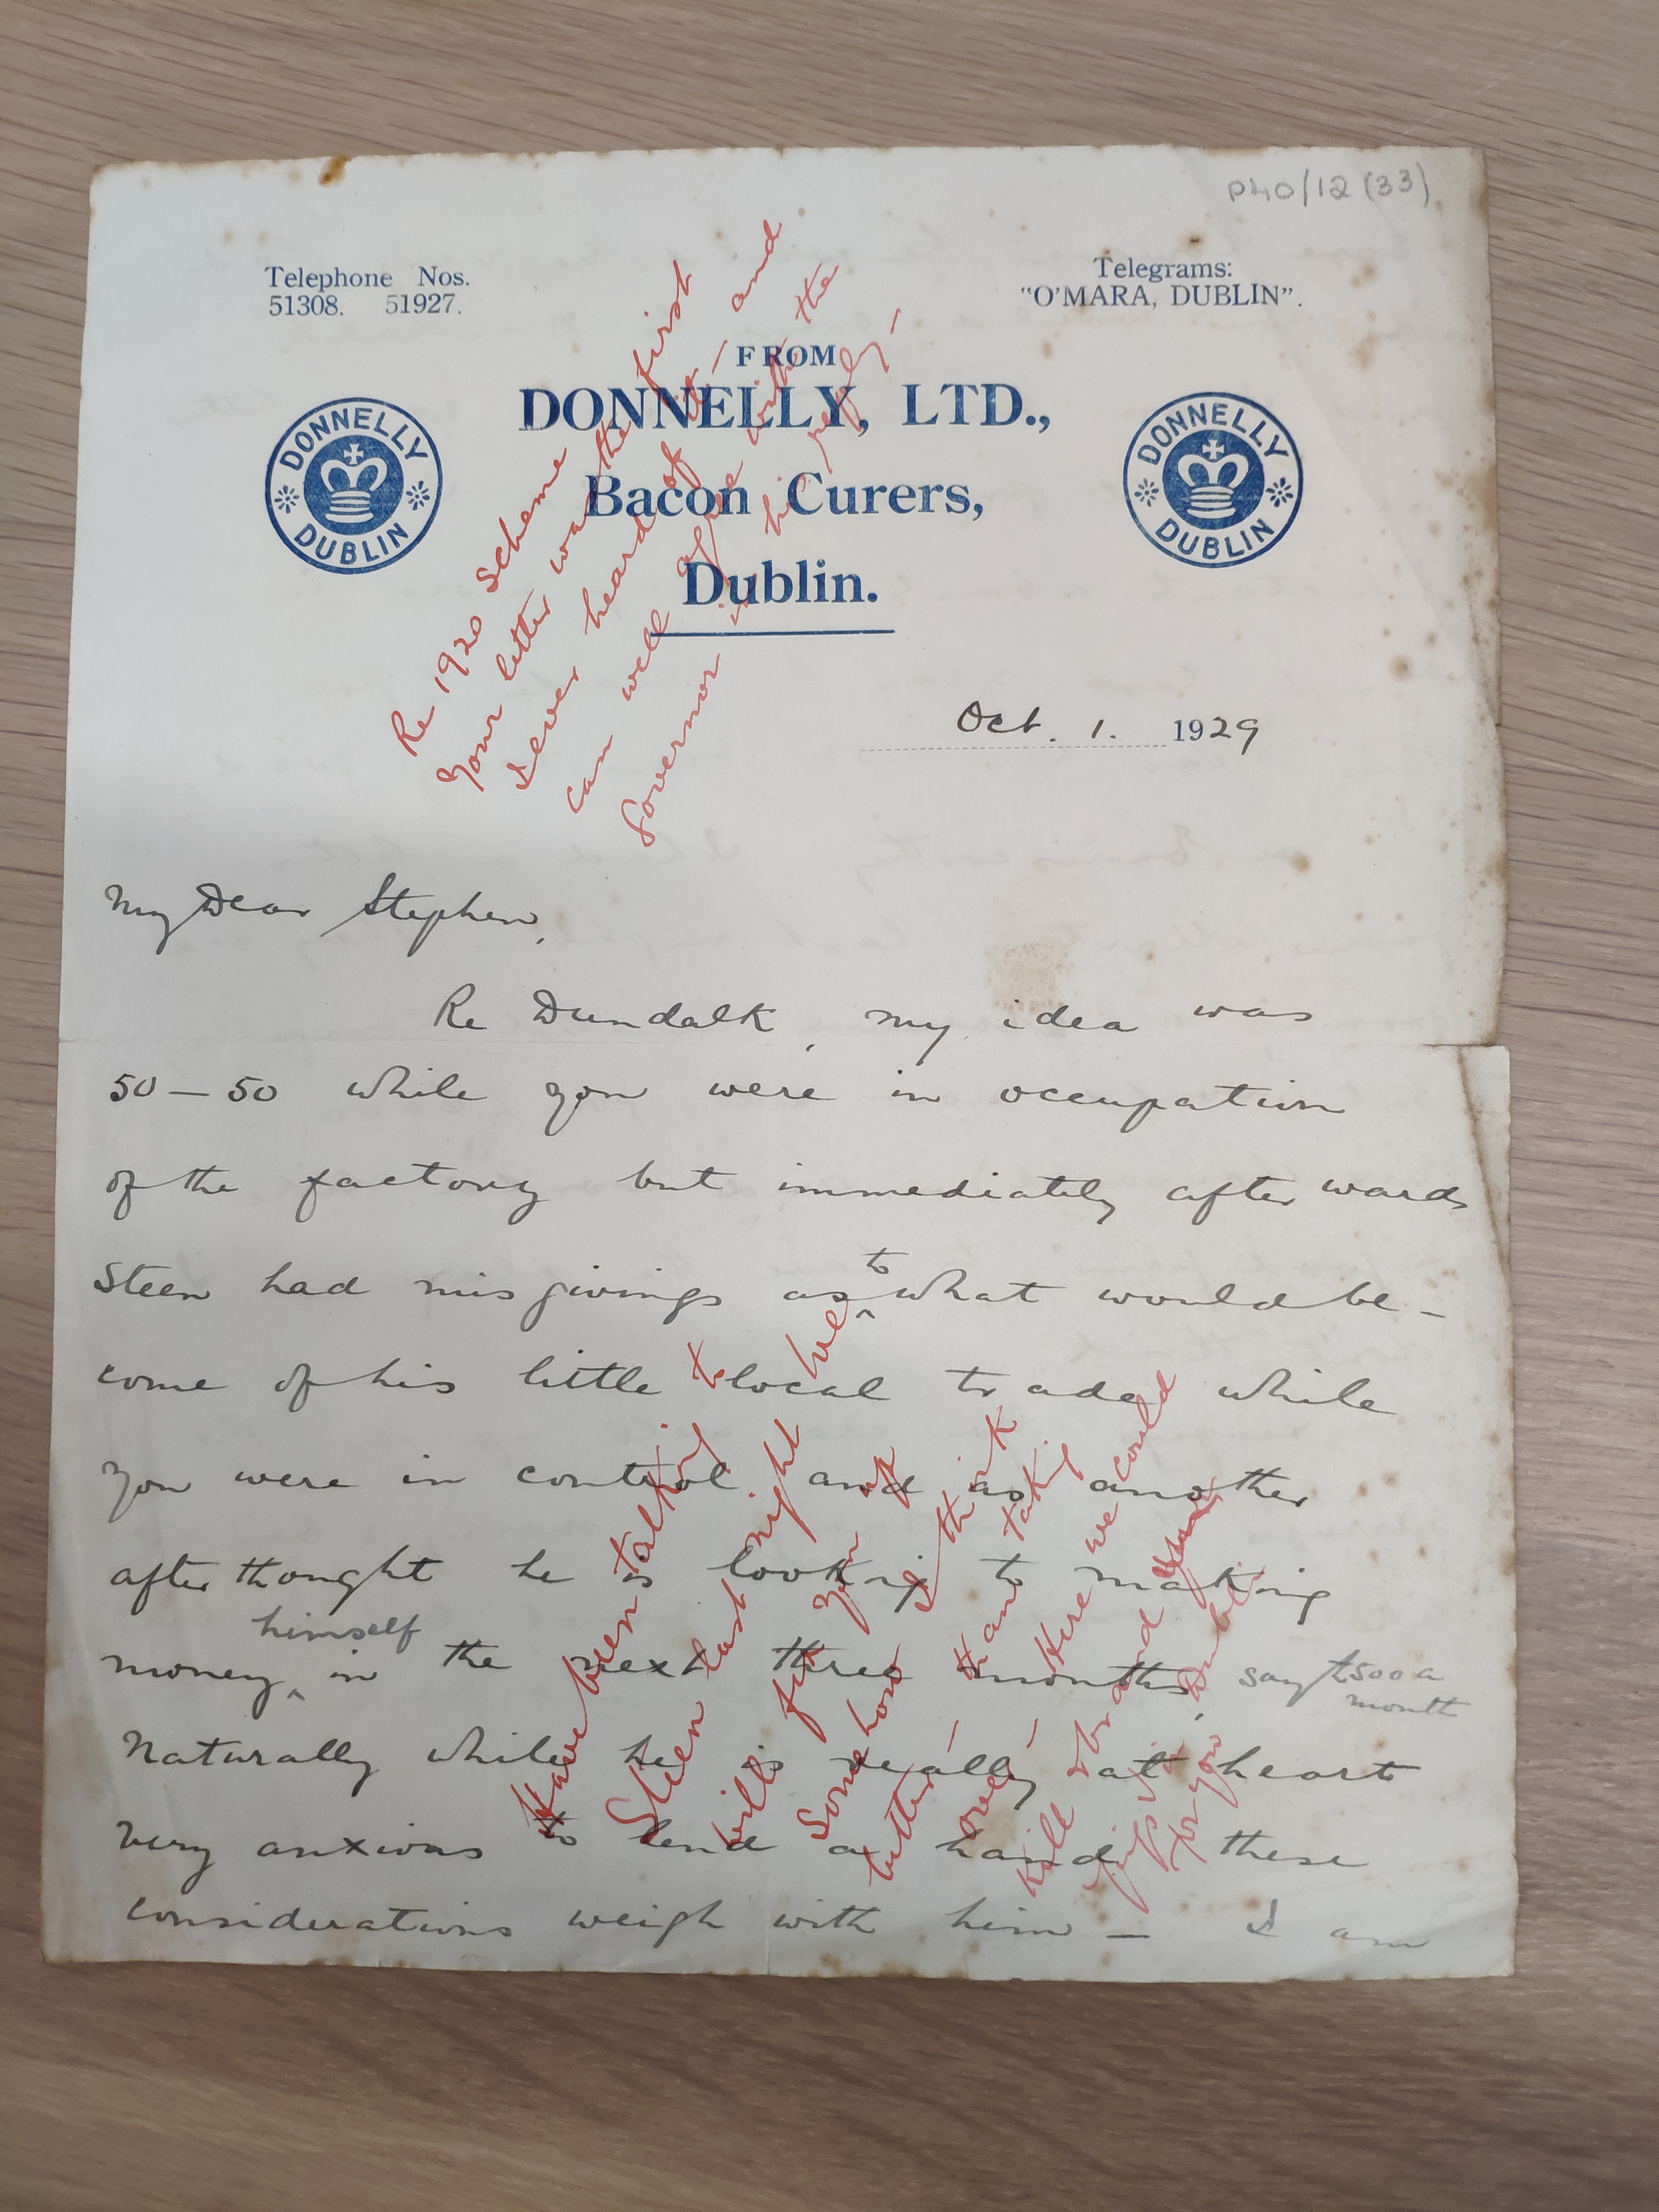 P40/12 (33)
Telephone Nos.
51308. 51927.
Telegrams:
"O'MARA, DUBLIN".
FROM
DONNELLY, LTD.,
Bacon Curers,
Dublin.
DONNELLY
DUBLIN
DONNELLY
DUBLIN
Re 1920 scheme
your letter was the first
I ever heard of it — and
can well agree with the
Governor in his reply —
Oct. 1. 1929
My Dear Stephen,
Re Dundalk, my idea was
50 — 50 while you were in occupation
of the factory but immediately afterwards
Steen had misgivings as to what would be-
come of his little local trade while
you were in control and as another
afterthought he is looking to making
money himself in the next three months, say £500 a
month
Naturally while he is really at heart
very anxious to lend a hand these
considerations weigh with him — I am
Have been talking to
Steen last night he
will fix you up
somehow I think
better than taking
over — Here we could
kill and
pigs in Dublin
for you